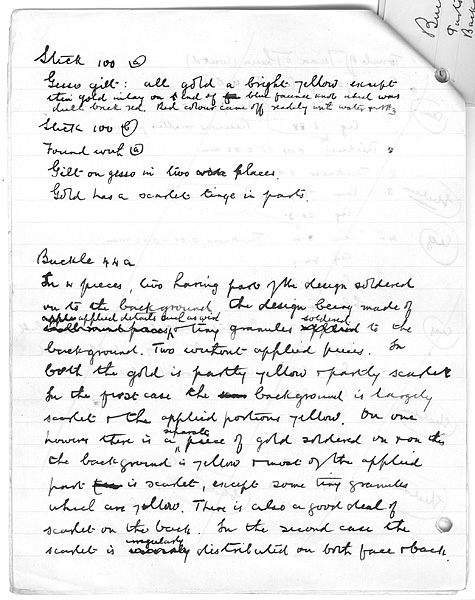 Buc
Parti
Back
Stick 100 (a)
Gesso gilt: all gold a bright yellow except
thin gold inlay on end of blue faience knob which was
dull brick red. Red colour came off readily with water
Stick 100 (b)
Found with (a)
Gilt on gesso in two places.
Gold has a scarlet tinge in parts.
Buckle 44a
In 4 pieces, two having part of the design soldered
on to the background, the design being made of
applied details such as wire
soldered
& tiny granules applied to the
background. Two without applied pieces. In
both the gold is partly yellow & partly scarlet
In the first case the background is largely
scarlet & the applied portions yellow. On one
separate
however there is a piece of gold soldered on & on this
the background is yellow & most of the applied
part is scarlet, except some tiny granules
which are yellow. There is also a good deal of
scarlet on the back. In the second case the
irregularly
scarlet is distributed on both face & back.